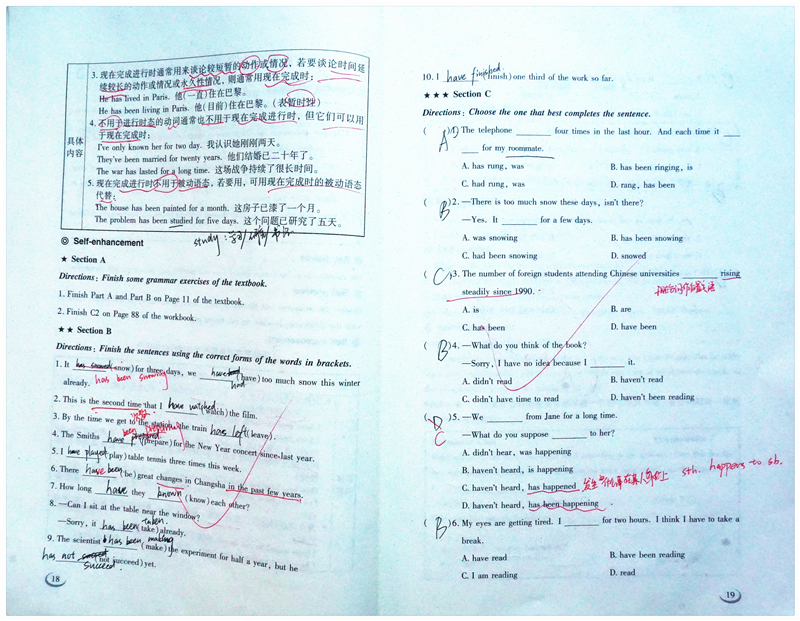 3. 现在完成进行时通常用来谈论较短暂的动作或情况，若要谈论时间延
续较长的动作或情况或永久性情况，则通常用现在完成时：
He has lived in Paris. 他(一直)住在巴黎。
He has been living in Paris. 他(目前)住在巴黎。(表暂时性)
4. 不用于进行时态的动词通常也不用于现在完成进行时，但它们可以用
于现在完成时：
具体
内容
I've only known her for two day. 我认识她刚刚两天。
They've been married for twenty years. 他们结婚已二十年了。
The war has lasted for a long time. 这场战争持续了很长时间。
5. 现在完成进行时不用于被动语态，若要用，可用现在完成时的被动语态
代替：
The house has been painted for a month. 这房子已漆了一个月。
The problem has been studied for five days. 这个问题已研究了五天。
study：学习/研究/书房
◎ Self-enhancement
★ Section A
Directions: Finish some grammar exercises of the textbook.
1. Finish Part A and Part B on Page 11 of the textbook.
2. Finish C2 on Page 88 of the workbook.
★★ Section B
Directions: Finish the sentences using the correct forms of the words in brackets.
1. It has snowed (snow) for three days, we have had (have) too much snow this winter
already. has been snowing
2. This is the second time that I have watched (watch) the film.
3. By the time we get to the station, the train has left (leave).
4. The Smiths have been prepared (prepare) for the New Year concert since last year.
5. I have played (play) table tennis three times this week.
6. There have been (be) great changes in Changsha in the past few years.
7. How long have they known (know) each other?
8. —Can I sit at the table near the window?
—Sorry, it has been taken (take) already.
9. The scientist has been making (make) the experiment for half a year, but he
has not succeed (not succeed) yet.
18
10. I have finished (finish) one third of the work so far.
★★★ Section C
Directions: Choose the one that best completes the sentence.
( A ) 1. The telephone ____ four times in the last hour. And each time it ____
____ for my roommate.
A. has rung, was B. has been ringing, is
C. had rung, was D. rang, has been
( B ) 2. —There is too much snow these days, isn't there?
—Yes. It ____ for a few days.
A. was snowing B. has been snowing
C. had been snowing D. snowed
( C ) 3. The number of foreign students attending Chinese universities ____ rising
steadily since 1990.
A. is B. are
C. has been D. have been
( B ) 4. —What do you think of the book?
—Sorry, I have no idea because I ____ it.
A. didn't read B. haven't read
C. didn't have time to read D. haven't been reading
( D ) 5. —We ____ from Jane for a long time.
C —What do you suppose ____ to her?
A. didn't hear, was happening
B. haven't heard, is happening
C. haven't heard, has happened sth. happens to sb.
D. haven't heard, has been happening
( B ) 6. My eyes are getting tired. I ____ for two hours. I think I have to take a
break.
A. have read B. have been reading
C. I am reading D. read
19